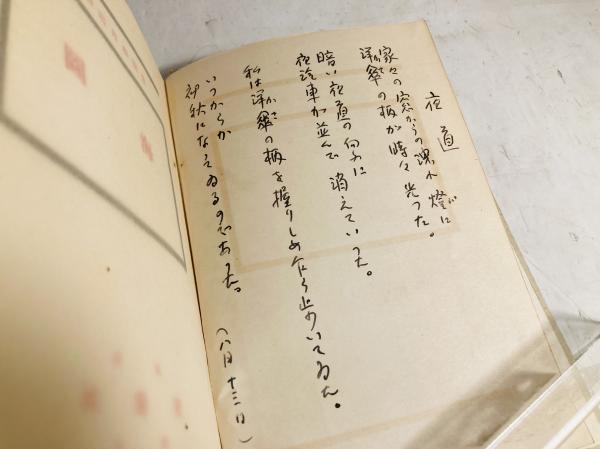 夜道
家々の窓からの洩れ燈に
洋傘の柄が時々光つた。
暗い夜道の向ふに
夜汽車が並んで消えていつた。
私は洋傘の柄を握りしめ乍ら歩いてゐた。
いつからか
初秋になつてゐるのであつた。
（八月十三日）